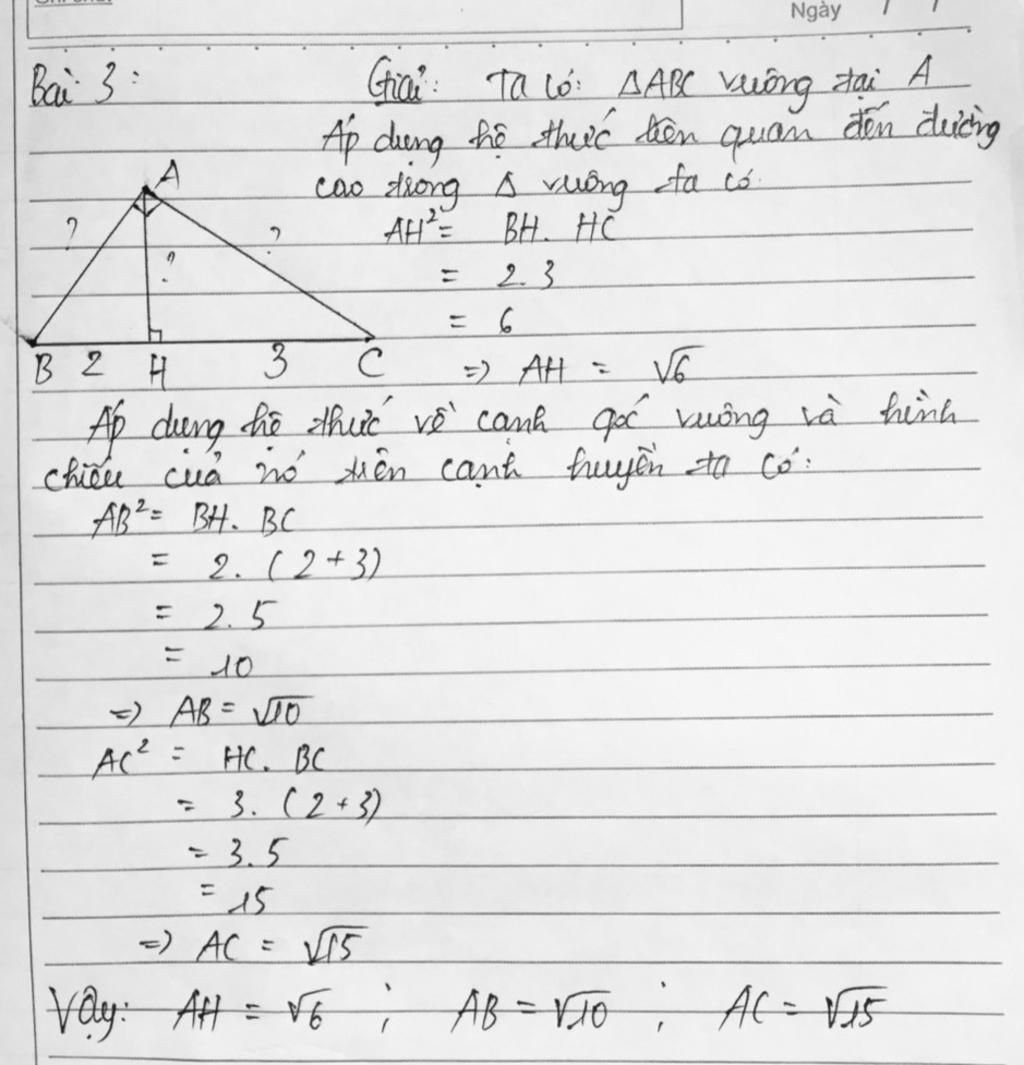 Ngày / /
Bài 3:
Giải: Ta có: ΔABC vuông tại A
Áp dụng hệ thức liên quan đến đường
cao trong Δ vuông ta có
A
?
?
?
B 2 H 3 C
AH² = BH. HC
= 2.3
= 6
=> AH = √6
Áp dụng hệ thức về cạnh góc vuông và hình
chiếu của nó trên cạnh huyền ta có:
AB² = BH. BC
= 2. (2+3)
= 2.5
= 10
=> AB = √10
AC² = HC. BC
= 3. (2+3)
= 3.5
= 15
=> AC = √15
Vậy: AH = √6 ; AB = √10 ; AC = √15